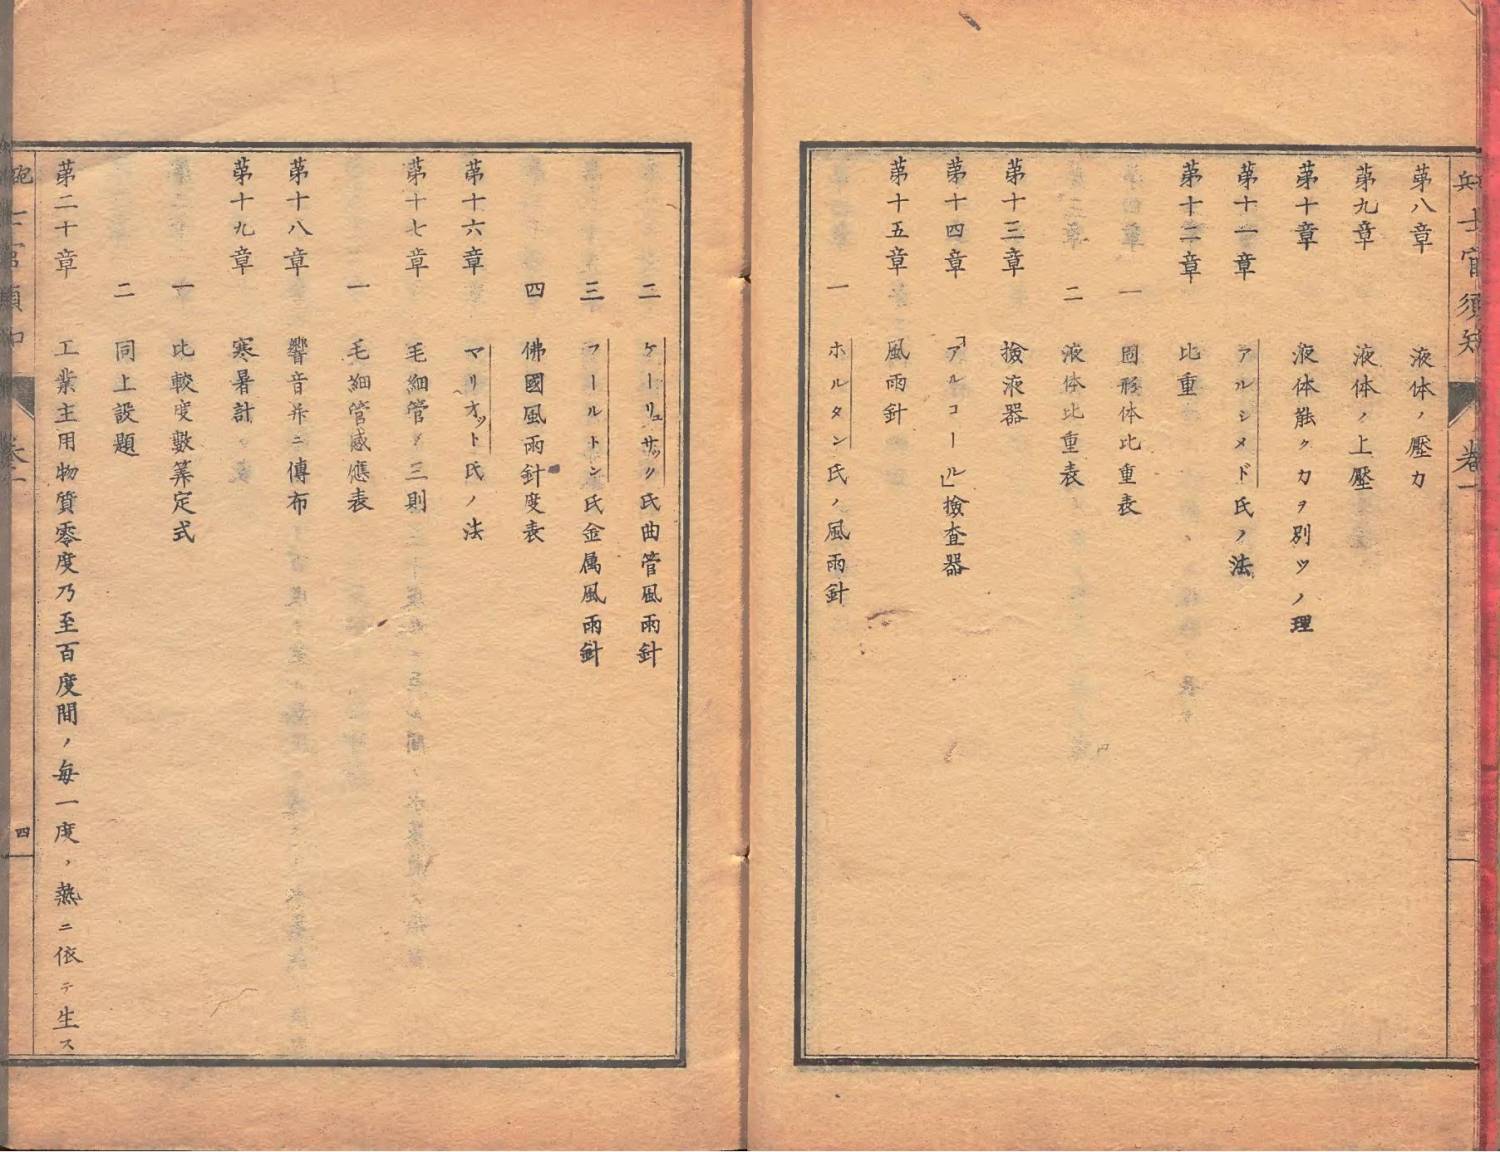 兵士官須知
卷一
第八章　液体ノ壓力
第九章　液体ノ上壓
第十章　液体能ク力ヲ別ツノ理
第十一章　アルシメド氏ノ法
第十二章　比重
一　固形体比重表
二　液体比重表
第十三章　撿液器
第十四章　「アルコール」撿查器
第十五章　風雨針
一　ホルタン氏ノ風雨針
二　ケーリュサック氏曲管風雨針
三　フールトン氏金属風雨針
四　佛國風雨針度表
第十六章　マリオット氏ノ法
第十七章　毛細管ノ三則
一　毛細管感應表
第十八章　響音并ニ傳布
第十九章　寒暑計
一　比較度數筭定式
二　同上設題
第二十章　工業主用物質零度乃至百度間ノ每一度ノ熱ニ依テ生ス
四